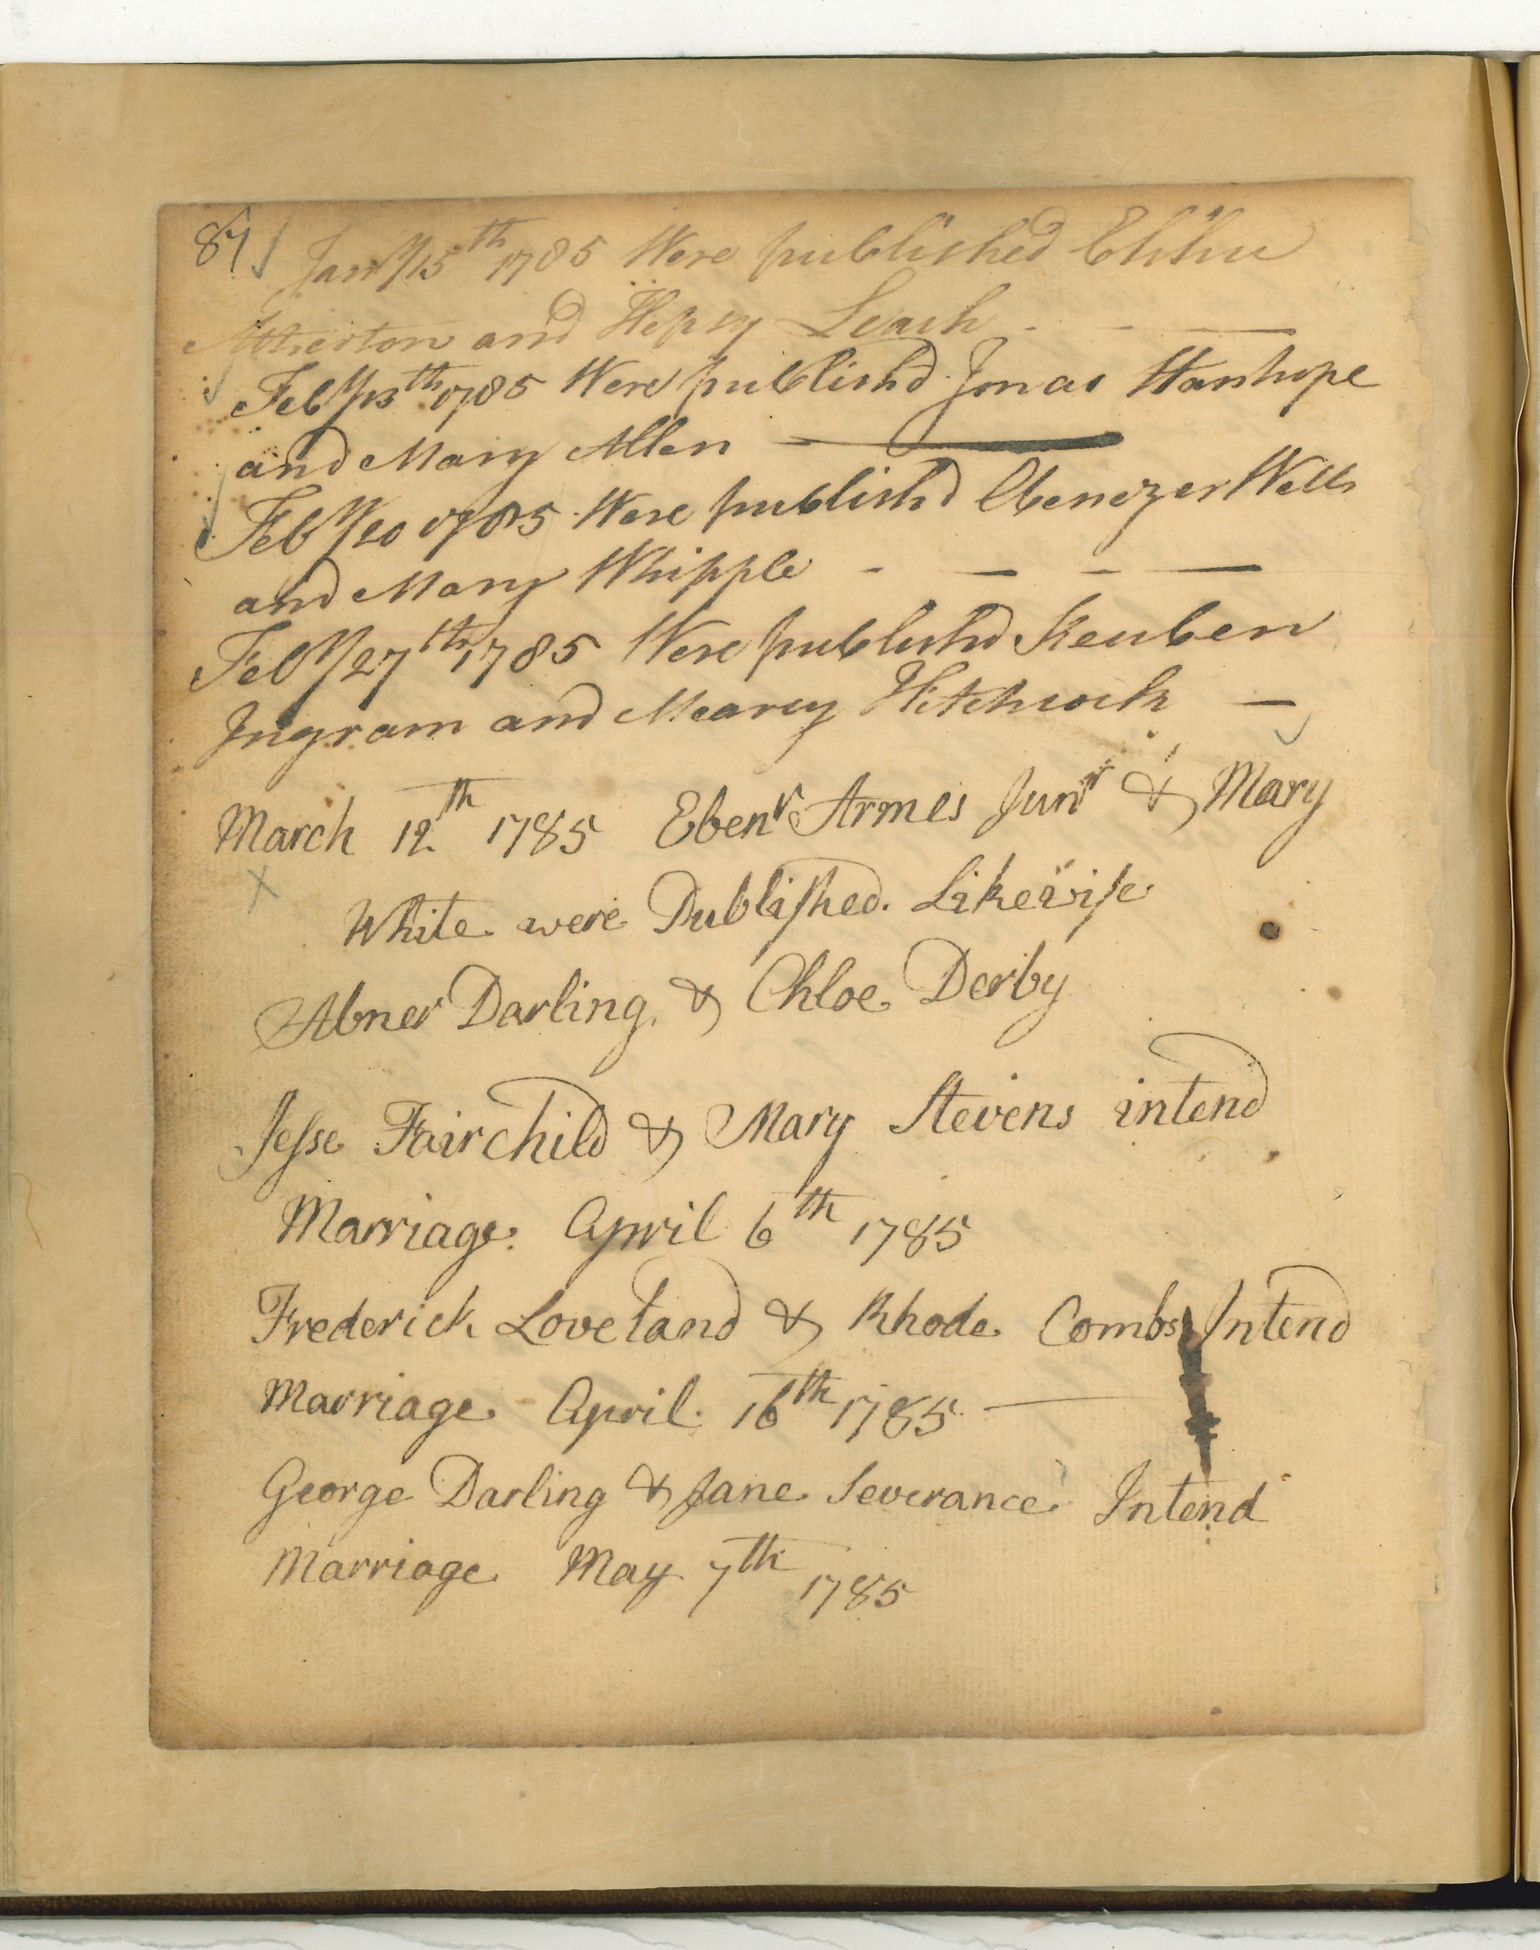 87
Jany 15th 1785 Were published Elihu
Atherton and Hepsy Leach
Feby 13th 1785 Were publishd Jonas Stanhope
and Mary Allen
Feby 20 1785 Were publishd Ebenezer Wells
and Mary Whipple
Feby 27th 1785 Were publishd Reuben
Ingram and Mearcy Hitchcock
March 12th 1785 Ebenr Armes Junr & Mary
White were Published. Likewise
Abner Darling & Chloe Derby
Jesse Fairchild & Mary Stevens intend
Marriage. April 6th 1785
Frederick Loveland & Rhode Combs Intend
Marriage April 16th 1785
George Darling & Jane Severance Intend
Marriage May 7th 1785